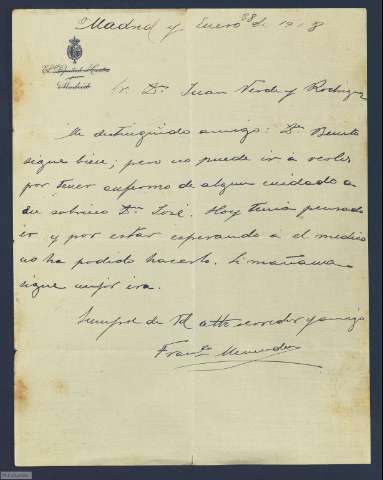 Madrid y Enero 28 de 1918
El Diputado a Cortes
por
Madrid
Sr. Dn. Juan Verde y Rodriguez
Mi distinguido amigo: Dn. Benito
sigue bien; pero no puede ir a verles
por tener enfermo de algun cuidado a
su sobrino Dn. José. Hoy tenia pensado
ir y por estar esperando a el medico
no ha podido hacerlo. Si mañana
sigue mejor ira.
Siempre de Vd atto servidor y amigo
Franco. Menendez